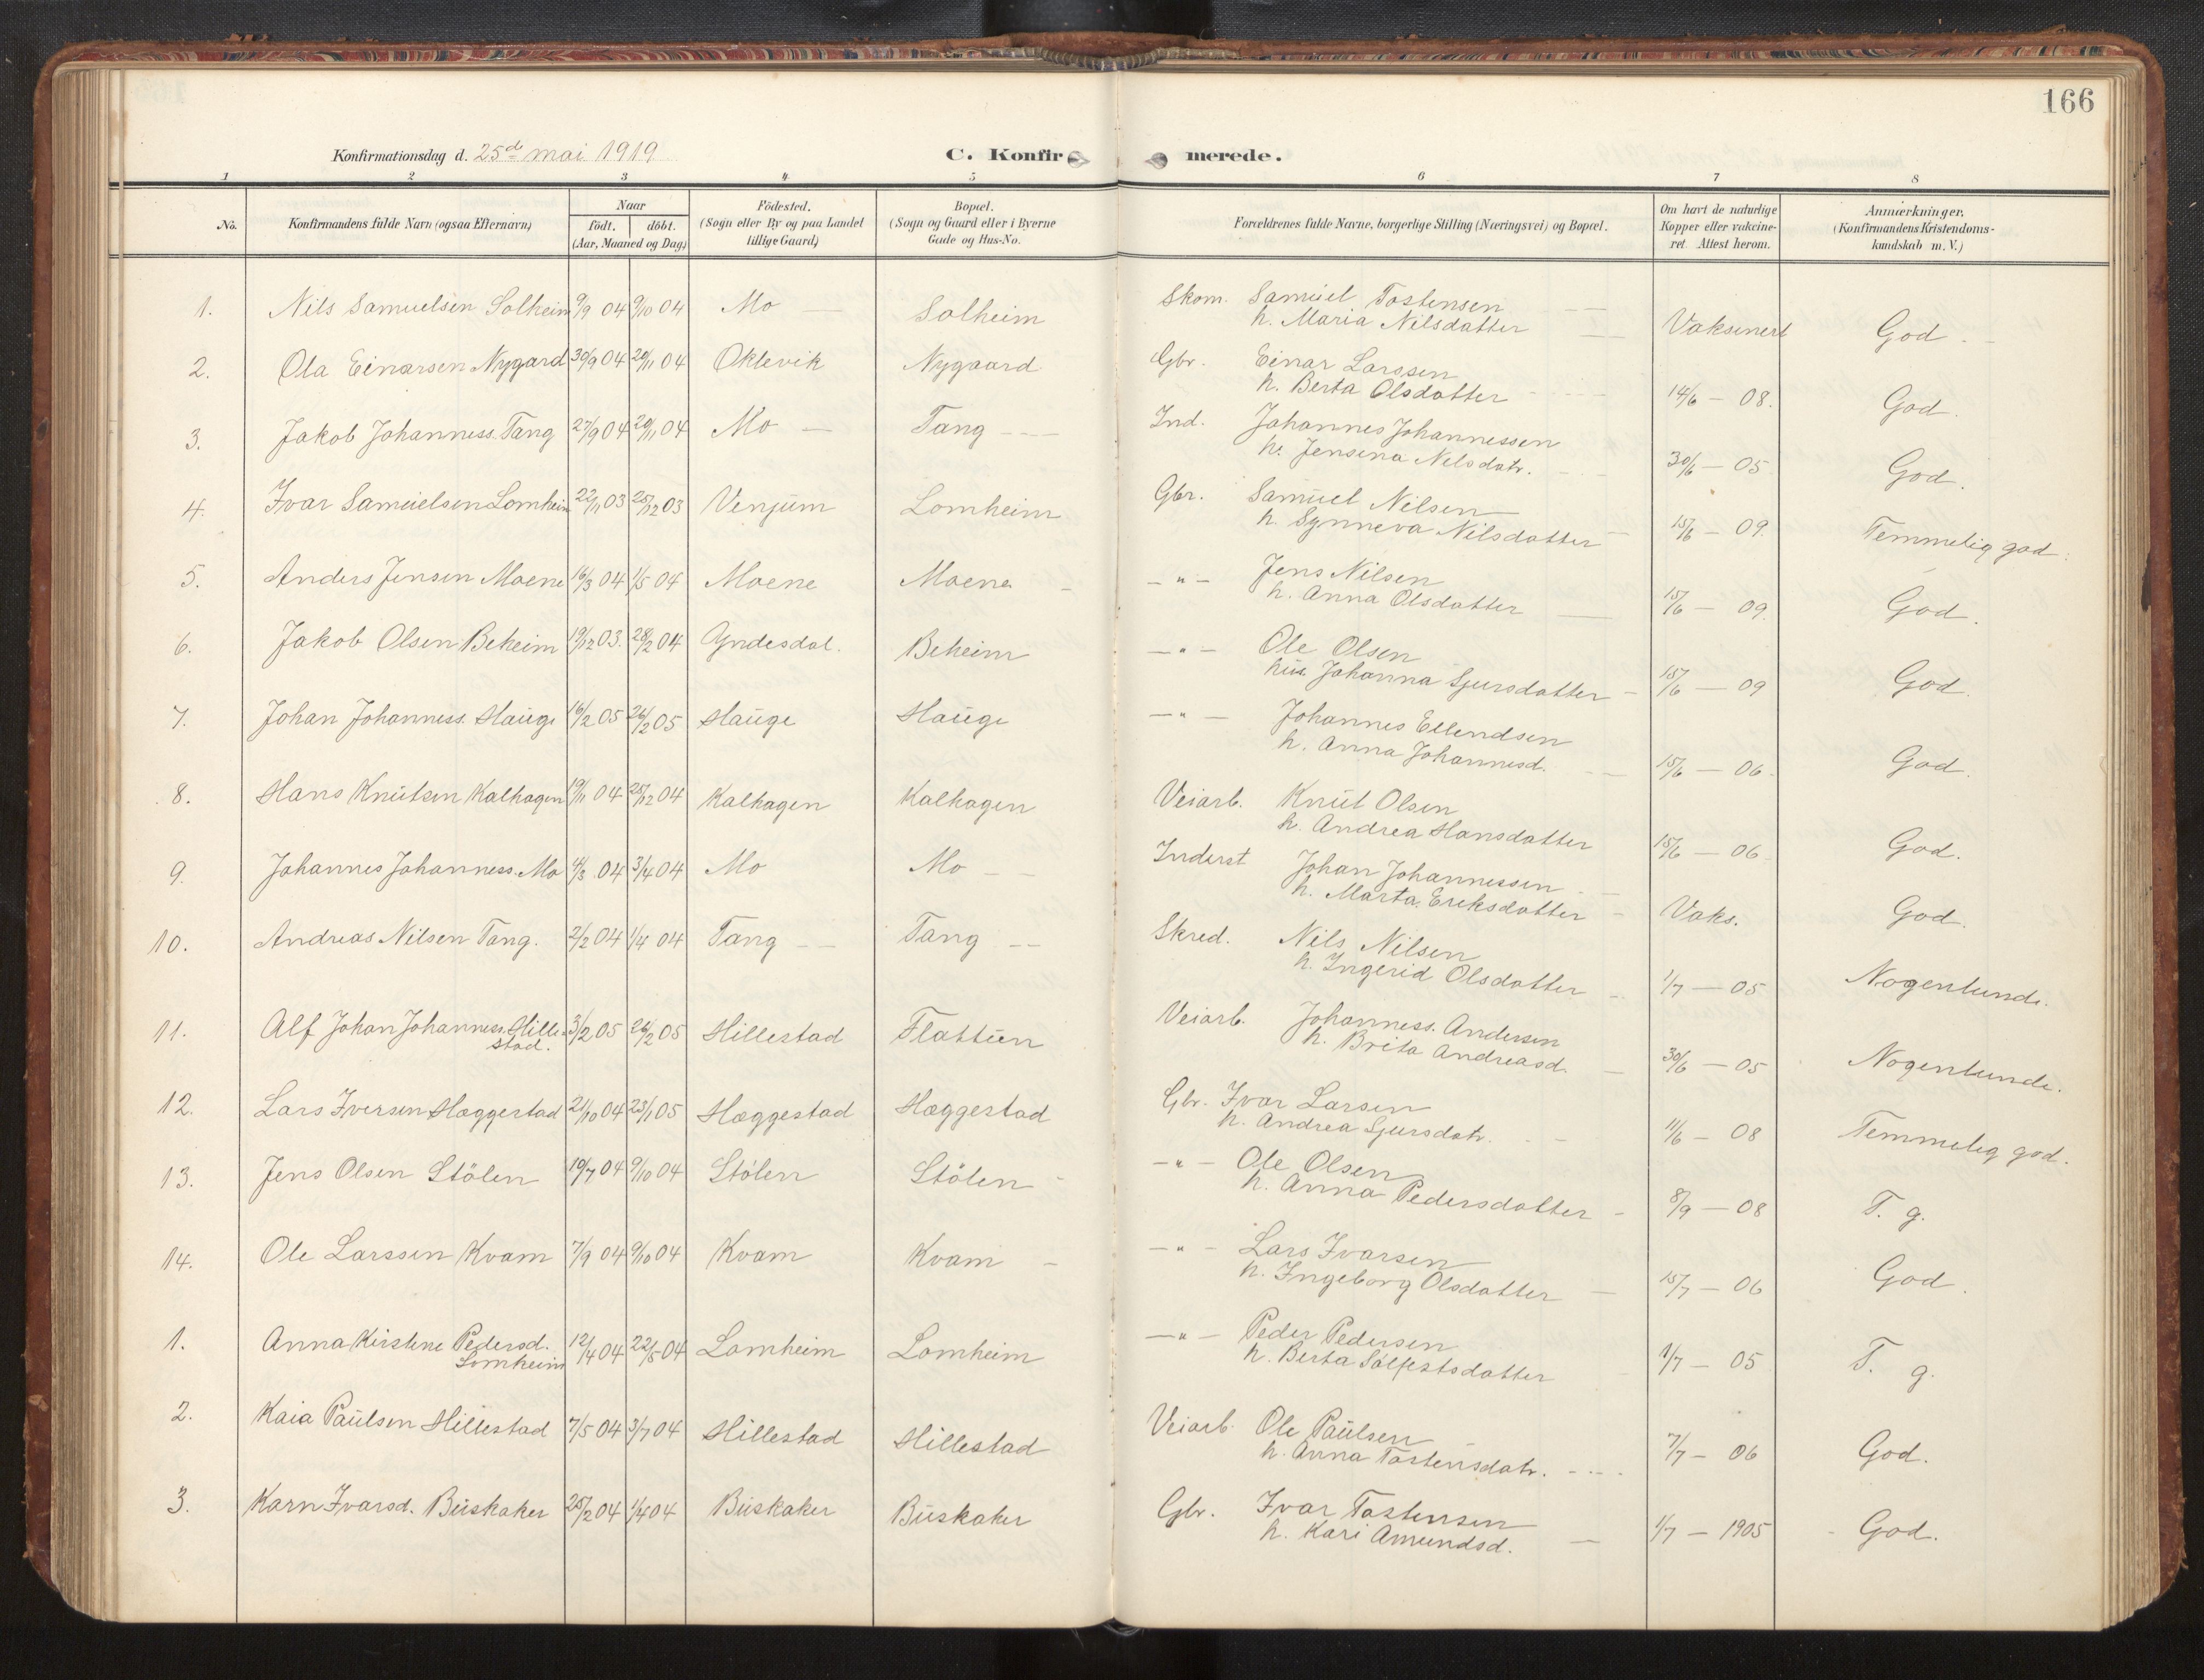 166
Konfirmationsdag d. 25de mai 1919 C. Konfirmerede.
1 2 3 4 5 6 7 8
No. Konfirmandens fulde Navn (ogsaa Efternavn) Naar födt. döbt. (Aar, Maaned og Dag) Födested. (Sogn eller By og paa Landet tillige Gaard) Bopæl. (Sogn og Gaard eller i Byerne Gade og Hus-No. Forældrenes fulde Navne, borgerlige Stilling (Næringsvei) og Bopæl. Om havt de naturlige Kopper eller vakcineret. Attest herom. Anmærkninger, (Konfirmandens Kristendomskundskab m. V.)
1. Nils Samuelsen Solheim 9/9 04 9/10 04 Mo — Solheim Skom. Samuel Tostensen
h. Maria Nilsdatter Vaksinert God
2. Ola Einarsen Nygard 30/9 04 20/11 04 Oklevik Nygaard Gbr. Einar Larssen
h. Berta Olsdatter 14/6 — 08. God.
3. Jakob Johanness. Tang 27/9 04 20/11 04 Mo — Tang Ind. Johannes Johannessen
h. Jensina Nilsdatr. 30/6 — 05 God.
4. Ivar Samuelsen Lomheim 22/11 03 25/12 03 Venjum Lomheim Gbr. Samuel Nilsen
h. Synneva Nilsdatter 15/6 — 09. Temmelig god.
5. Anders Jensen Moene 16/3 04 1/5 04 Moene Moene —"— Jens Nilsen
h. Anna Olsdatter 15/6 — 09. God.
6. Jakob Olsen Beheim 19/12 03. 28/2 04 Yndesdal. Beheim —"— Ole Olsen
hus. Johanna Sjursdatter 15/6 — 09 God.
7. Johan Johanness. Hauge 16/2 05 26/2 05 Hauge Hauge —"— Johannes Ellendsen
h. Anna Johannesd. 15/6 — 06. God.
8. Hans Knutsen Kalhagen 19/11 04 25/12 04 Kalhagen Kalhagen Veiarb. Knut Olsen
h. Andrea Hansdatter 15/6 — 06. God.
9. Johannes Johanness. Mo 4/3 04 3/4 04 Mo Mo Inderst Johan Johannessen
h. Marta Ereksdatter Vaks. God.
10. Andreas Nilsen Tang. 2/2 04 1/4 04 Tang Tang Skred. Nils Nilsen
h. Ingerid Olsdatter 1/7 — 05 Nogenlunde.
11. Alf Johan Johanness. Hille-
stad. 3/2 05 26/2 05 Hillestad Flattun Veiarb. Johanness. Andersen
h. Brita Andreasd. 30/6 — 05 Nogenlunde.
12. Lars Iversen Hæggestad 21/10 04 23/1 05 Hæggestad Hæggestad Gbr. Ivar Larsen
h. Andrea Sjursdatr. 11/6 — 08 Temmelig god.
13. Jens Olsen Stölen 19/7 04 9/10 04 Stölen Stölen —"— Ole Olsen
h. Anna Pedersdatter 8/9 — 08 T. g.
14. Ole Larssen Kvam 7/9 04 9/10 04 Kvam Kvam —"— Lars Ivarsen
h. Ingeborg Olsdatter 15/7 — 06 God.
1. Anna Kirstine Pedersd.
Lomheim 12/4 04 22/5 04 Lomheim Lomheim —"— Peder Pedersen
h. Berta Sölfestsdatter 1/7 — 05 T. g.
2. Kaia Paulsen Hillestad 7/5 04 3/7 04 Hillestad Hillestad Veiarb. Ole Paulsen
h. Anna Tostensdatr. 7/7 — 06 God.
3. Karn Ivarsd. Buskaker 25/2 04 1/4 04 Buskaker Buskaker Gbr. Ivar Tostensen
h. Kari Amundsd. 1/7 — 1905 God.